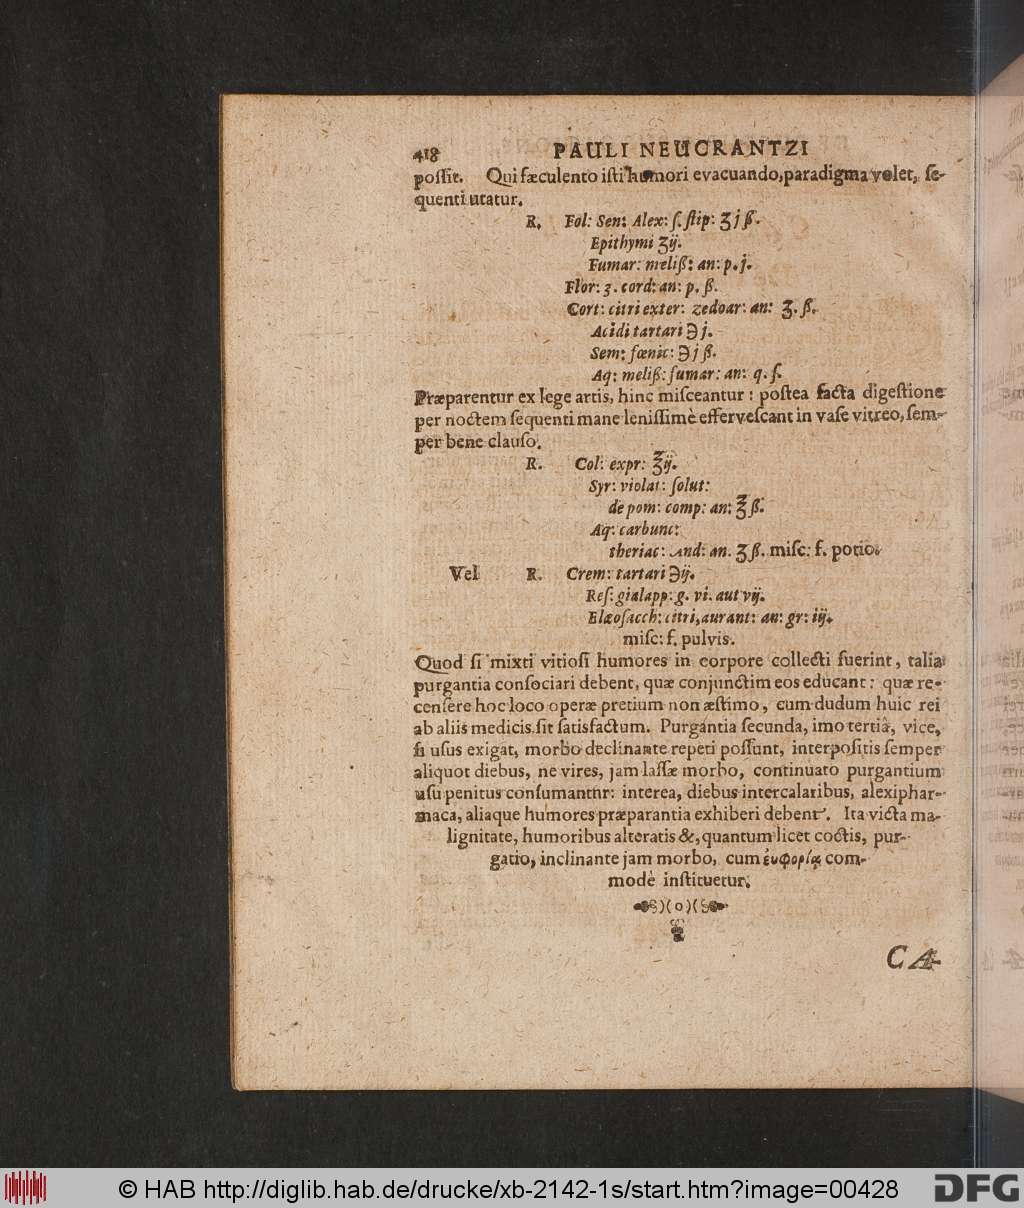 418 PAULI NEUCRANTZI
possit. Qui fæculento isti humori evacuando, paradigma volet, se-
quenti utatur.
R. Fol: Sen: Alex: s. stip: ʒ j ß.
Epithymi ʒij.
Fumar: meliß: an: p. j.
Flor: 3. cord: an: p. ß.
Cort: citri exter: zedoar: an: ʒ. ß.
Acidi tartari ℈ j.
Sem: fœnic: ℈ j ß.
Aq: meliß: fumar: an: q. s.
Præparentur ex lege artis, hinc misceantur: postea facta digestione
per noctem sequenti mane lenissimè effervescant in vase vitreo, sem-
per bene clauso.
R. Col: expr: ℥ij.
Syr: violat: solut:
de pom: comp: an: ℥ ß.
Aq: carbunc:
theriac: And: an. ʒ ß. misc: f. potio.
Vel R. Crem: tartari ℈ij.
Res: gialapp: g. vi. aut vij.
Elæosacch: citri, aurant: an: gr: iij.
misc: f. pulvis.
Quod si mixti vitiosi humores in corpore collecti fuerint, talia
purgantia consociari debent, quæ conjunctim eos educant: quæ re-
censere hoc loco operæ pretium non æstimo, cum dudum huic rei
ab aliis medicis sit satisfactum. Purgantia secunda, imo tertiâ, vice,
si usus exigat, morbo declinante repeti possunt, interpositis semper
aliquot diebus, ne vires, jam lassæ morbo, continuato purgantium
usu penitus consumantur: interea, diebus intercalaribus, alexiphar-
maca, aliaque humores præparantia exhiberi debent. Ita victa ma-
lignitate, humoribus alteratis &, quantum licet coctis, pur-
gatio, inclinante jam morbo, cum ἐυφορίᾳ com-
modè instituetur.
)(o)(
CA-
© HAB http://diglib.hab.de/drucke/xb-2142-1s/start.htm?image=00428
DFG